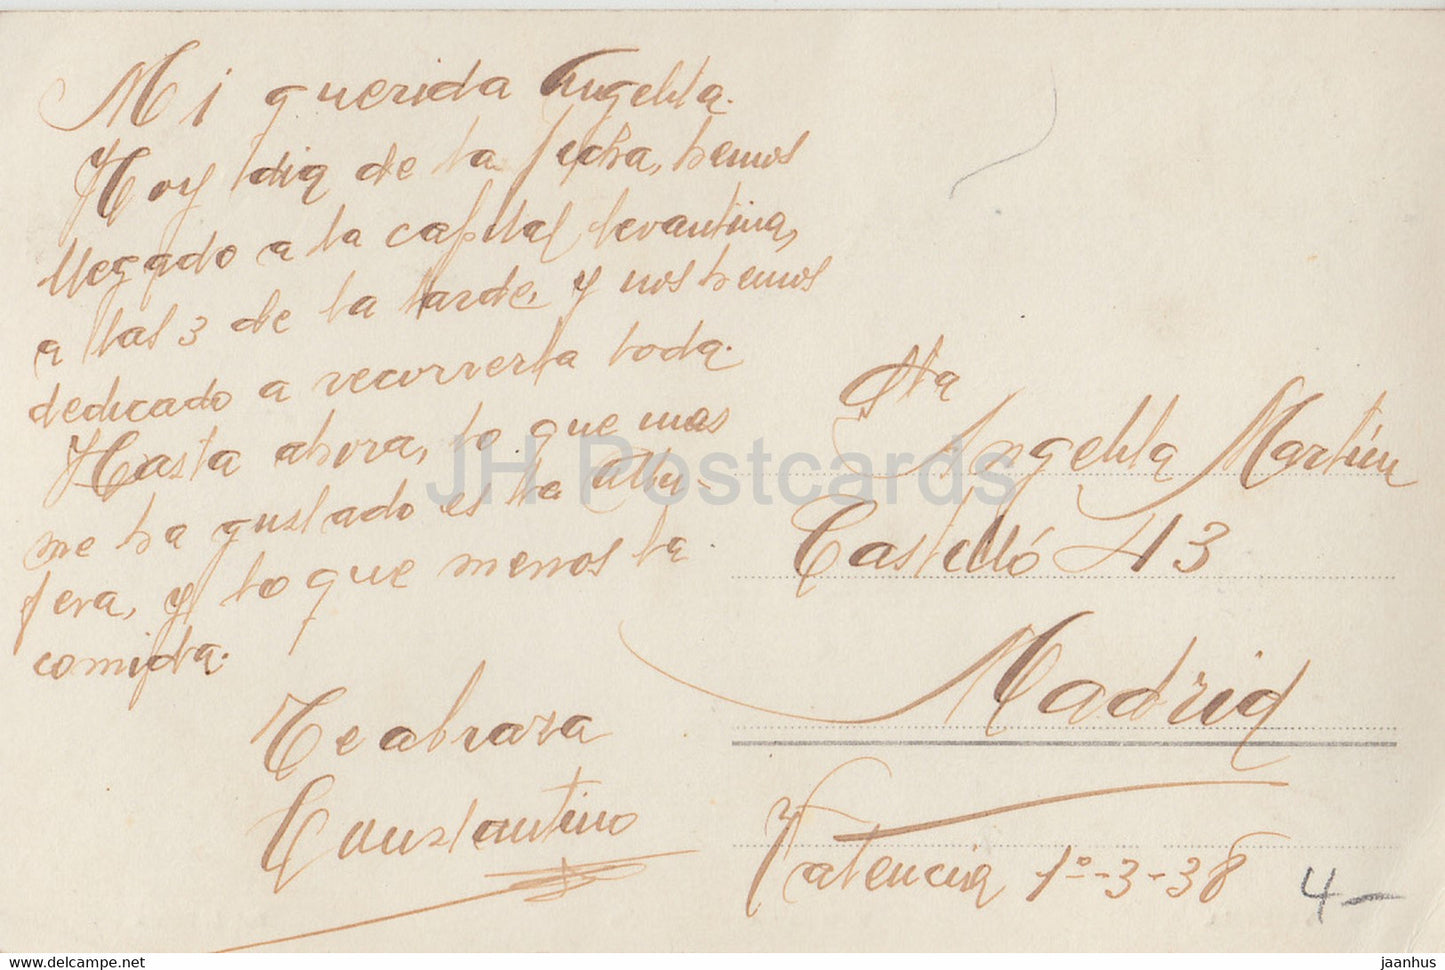 Mi querida Angelita.
Hoy dia de la fecha, hemos
llegado a la capital levantina,
a las 3 de la tarde, y nos hemos
dedicado a recorrerla toda.
Hasta ahora, lo que mas
me ha gustado es la Albu-
fera, y lo que menos la
comida.
Te abraza
Constantino
Sta
Angelita Martín
Castelló 43
Madrid
Valencia 1º-3-38
4-
JH Postcards
www.delcampe.net
jaanhus